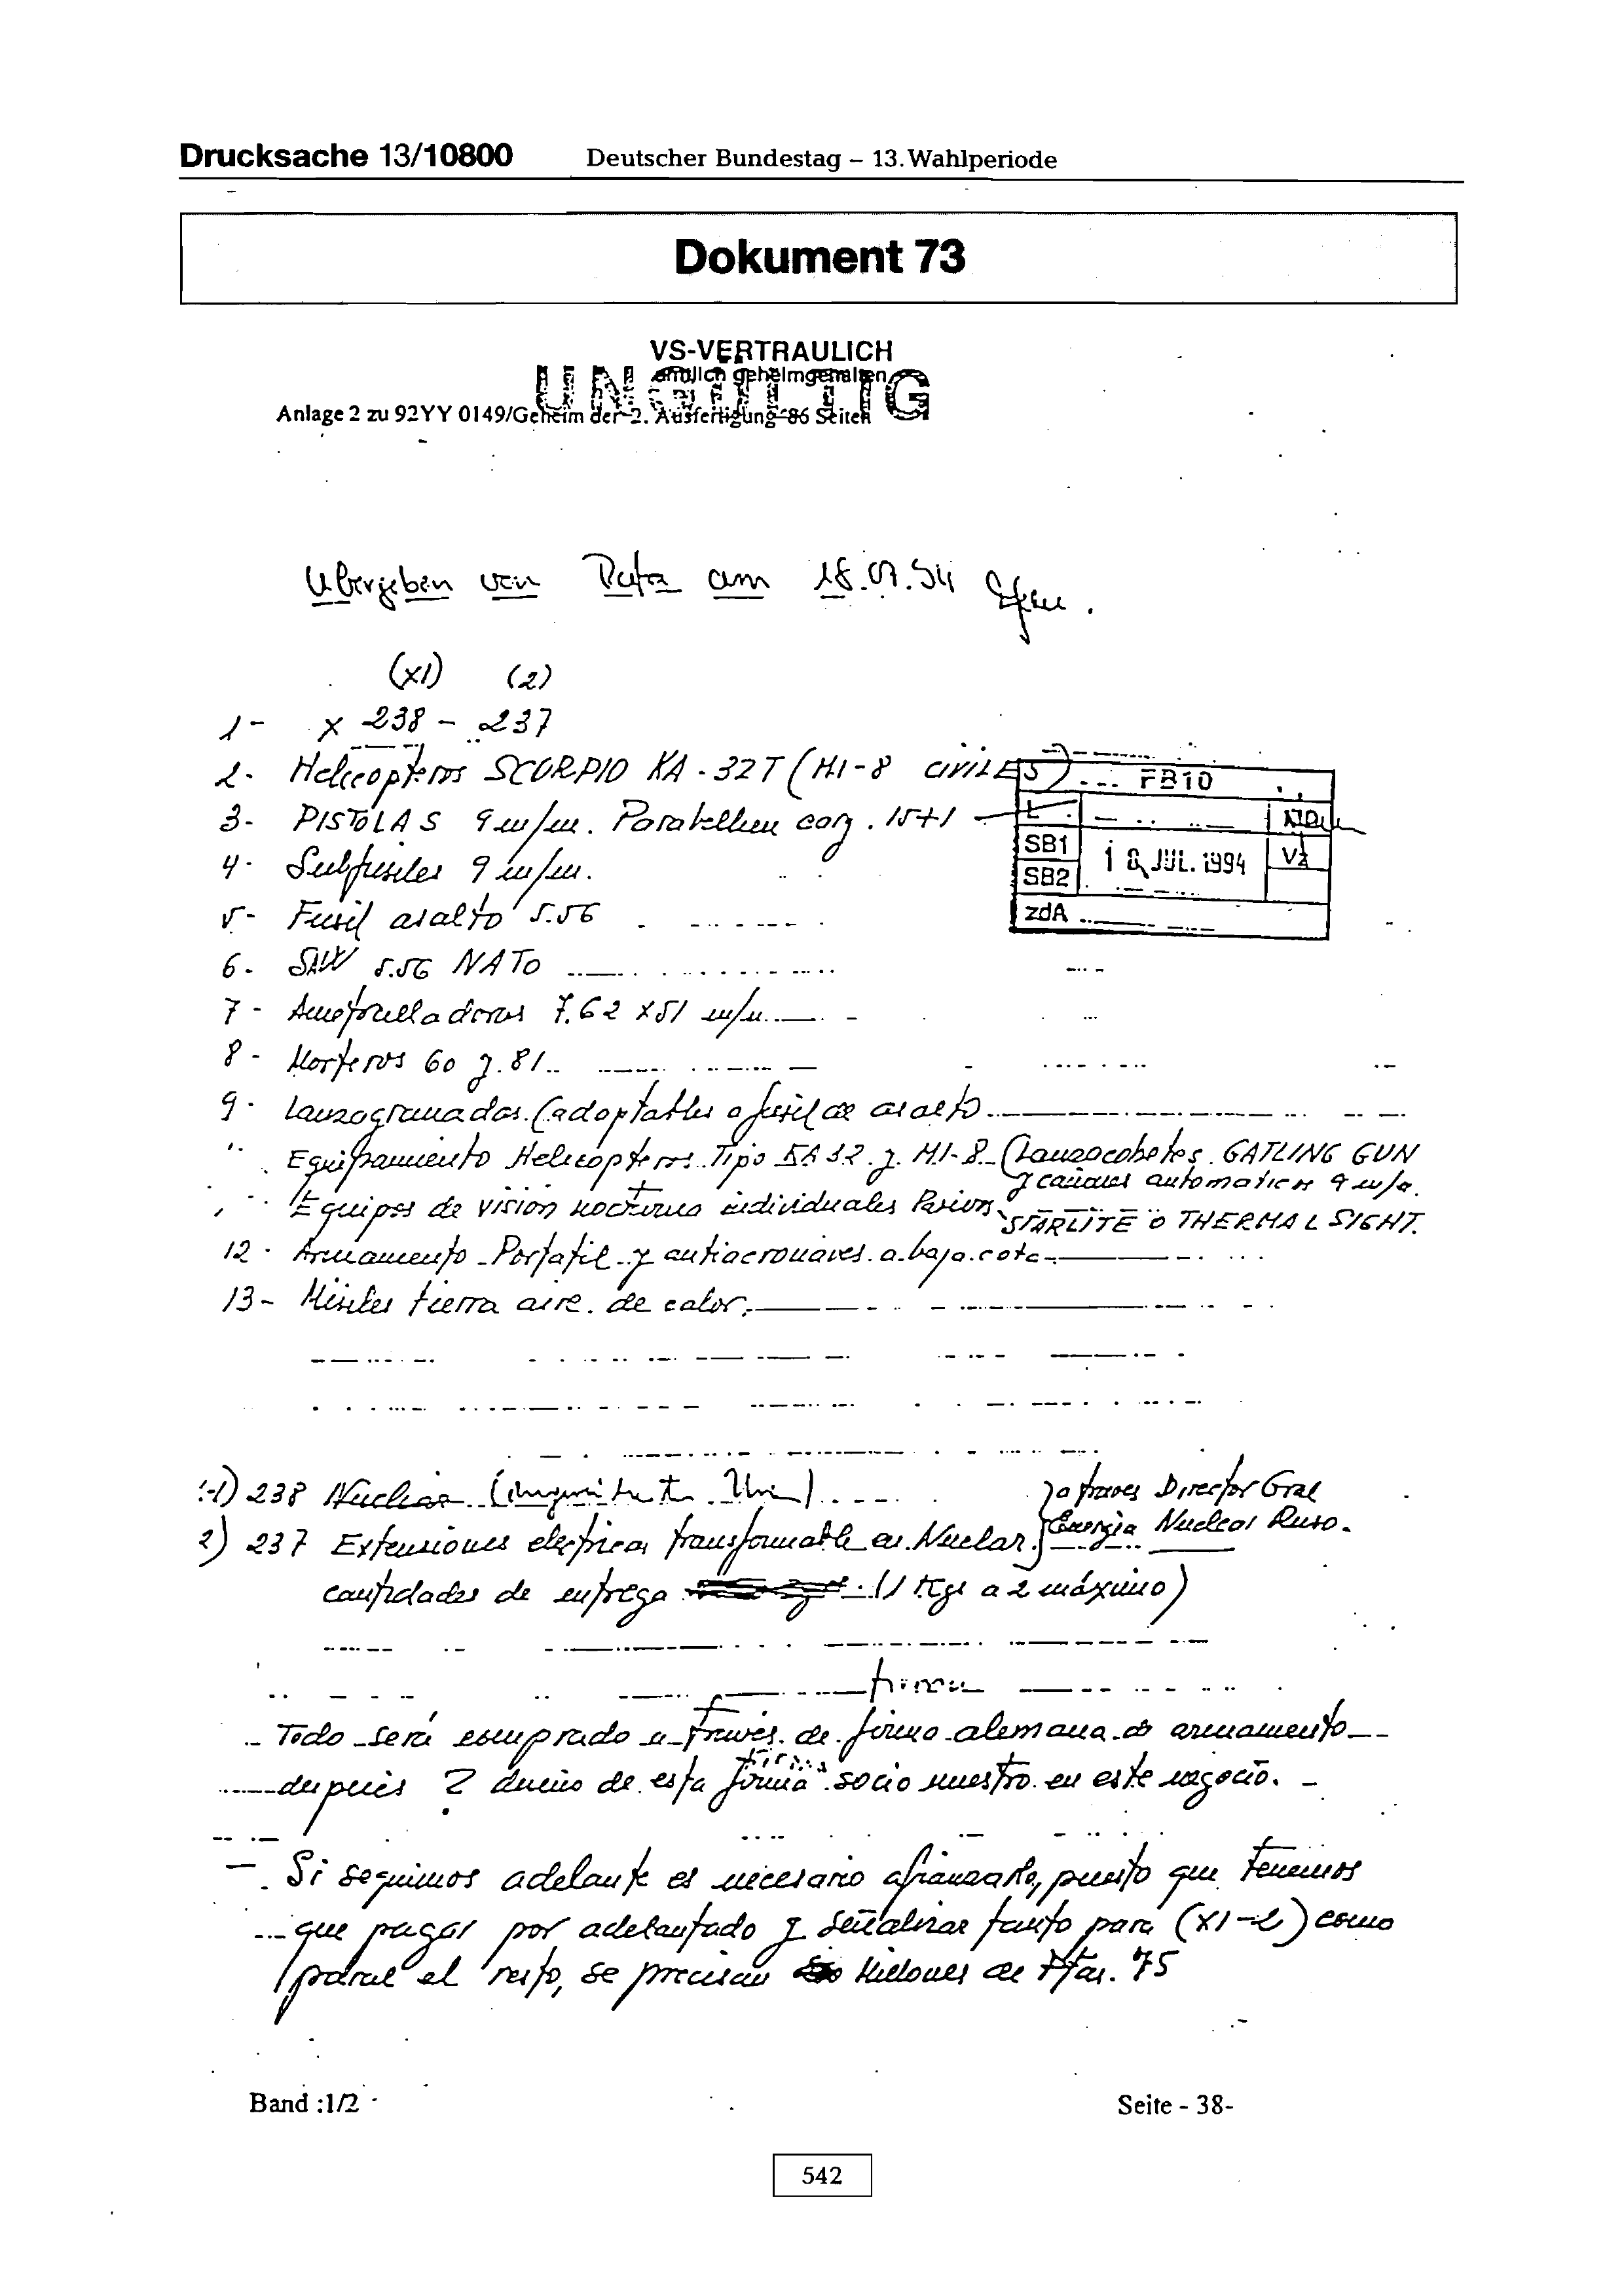 Drucksache 13/10800 Deutscher Bundestag – 13. Wahlperiode
Dokument 73
VS-VERTRAULICH
amtlich geheimgehalten
UNGÜLTIG
Anlage 2 zu 92YY 0149/Geheim der 2. Ausfertigung 86 Seiten
Übergeben von am 18.07.94
(X1) (2)
1- X 238 - 237
2- Helicopteros SCORPIO KA-32T (MI-8 CIVILES)
3- PISTOLAS 9 m/m. Parabellum carg. 15+1
4- Subfusiles 9 m/m.
5- Fusil asalto 5.56
6- SAW 5.56 NATO
7- Ametralladoras 7.62 x 51 m/m.
8- Morteros 60 y 81.
9- Lanzogranadas (adoptables a fusil de asalto
Equipamiento Helicopteros Tipo KA 32 y MI-8 (Lanzacohetes. GATLING GUN
y cañones automaticos 9 m/m.
Equipos de vision nocturna individuales
STARLITE o THERMAL SIGHT.
12- Armamento Portatil y antiaeronaves a baja cota
13- Misiles tierra aire de calor.
FB10
L
SB1
SB2
18. JUL. 1994
VZ
zdA
1) 238 Nuclear
2) 237 Extensiones electricas transformable en Nuclear.
a traves Director Gral
Energia Nuclear Ruso.
cantidades de entrega (1 Kgs a 2 máximo)
firma
Todo será comprado a través de firma alemana de armamento
después ? dueño de esta firma socio nuestro en este negocio.
firma
- Si seguimos adelante es necesario afianzarlo, puesto que tenemos
que pagar por adelantado y señalizar tanto para (X1-2) como
para el resto, se precisan Millones de Ptas. 75
Band :1/2
Seite - 38-
542